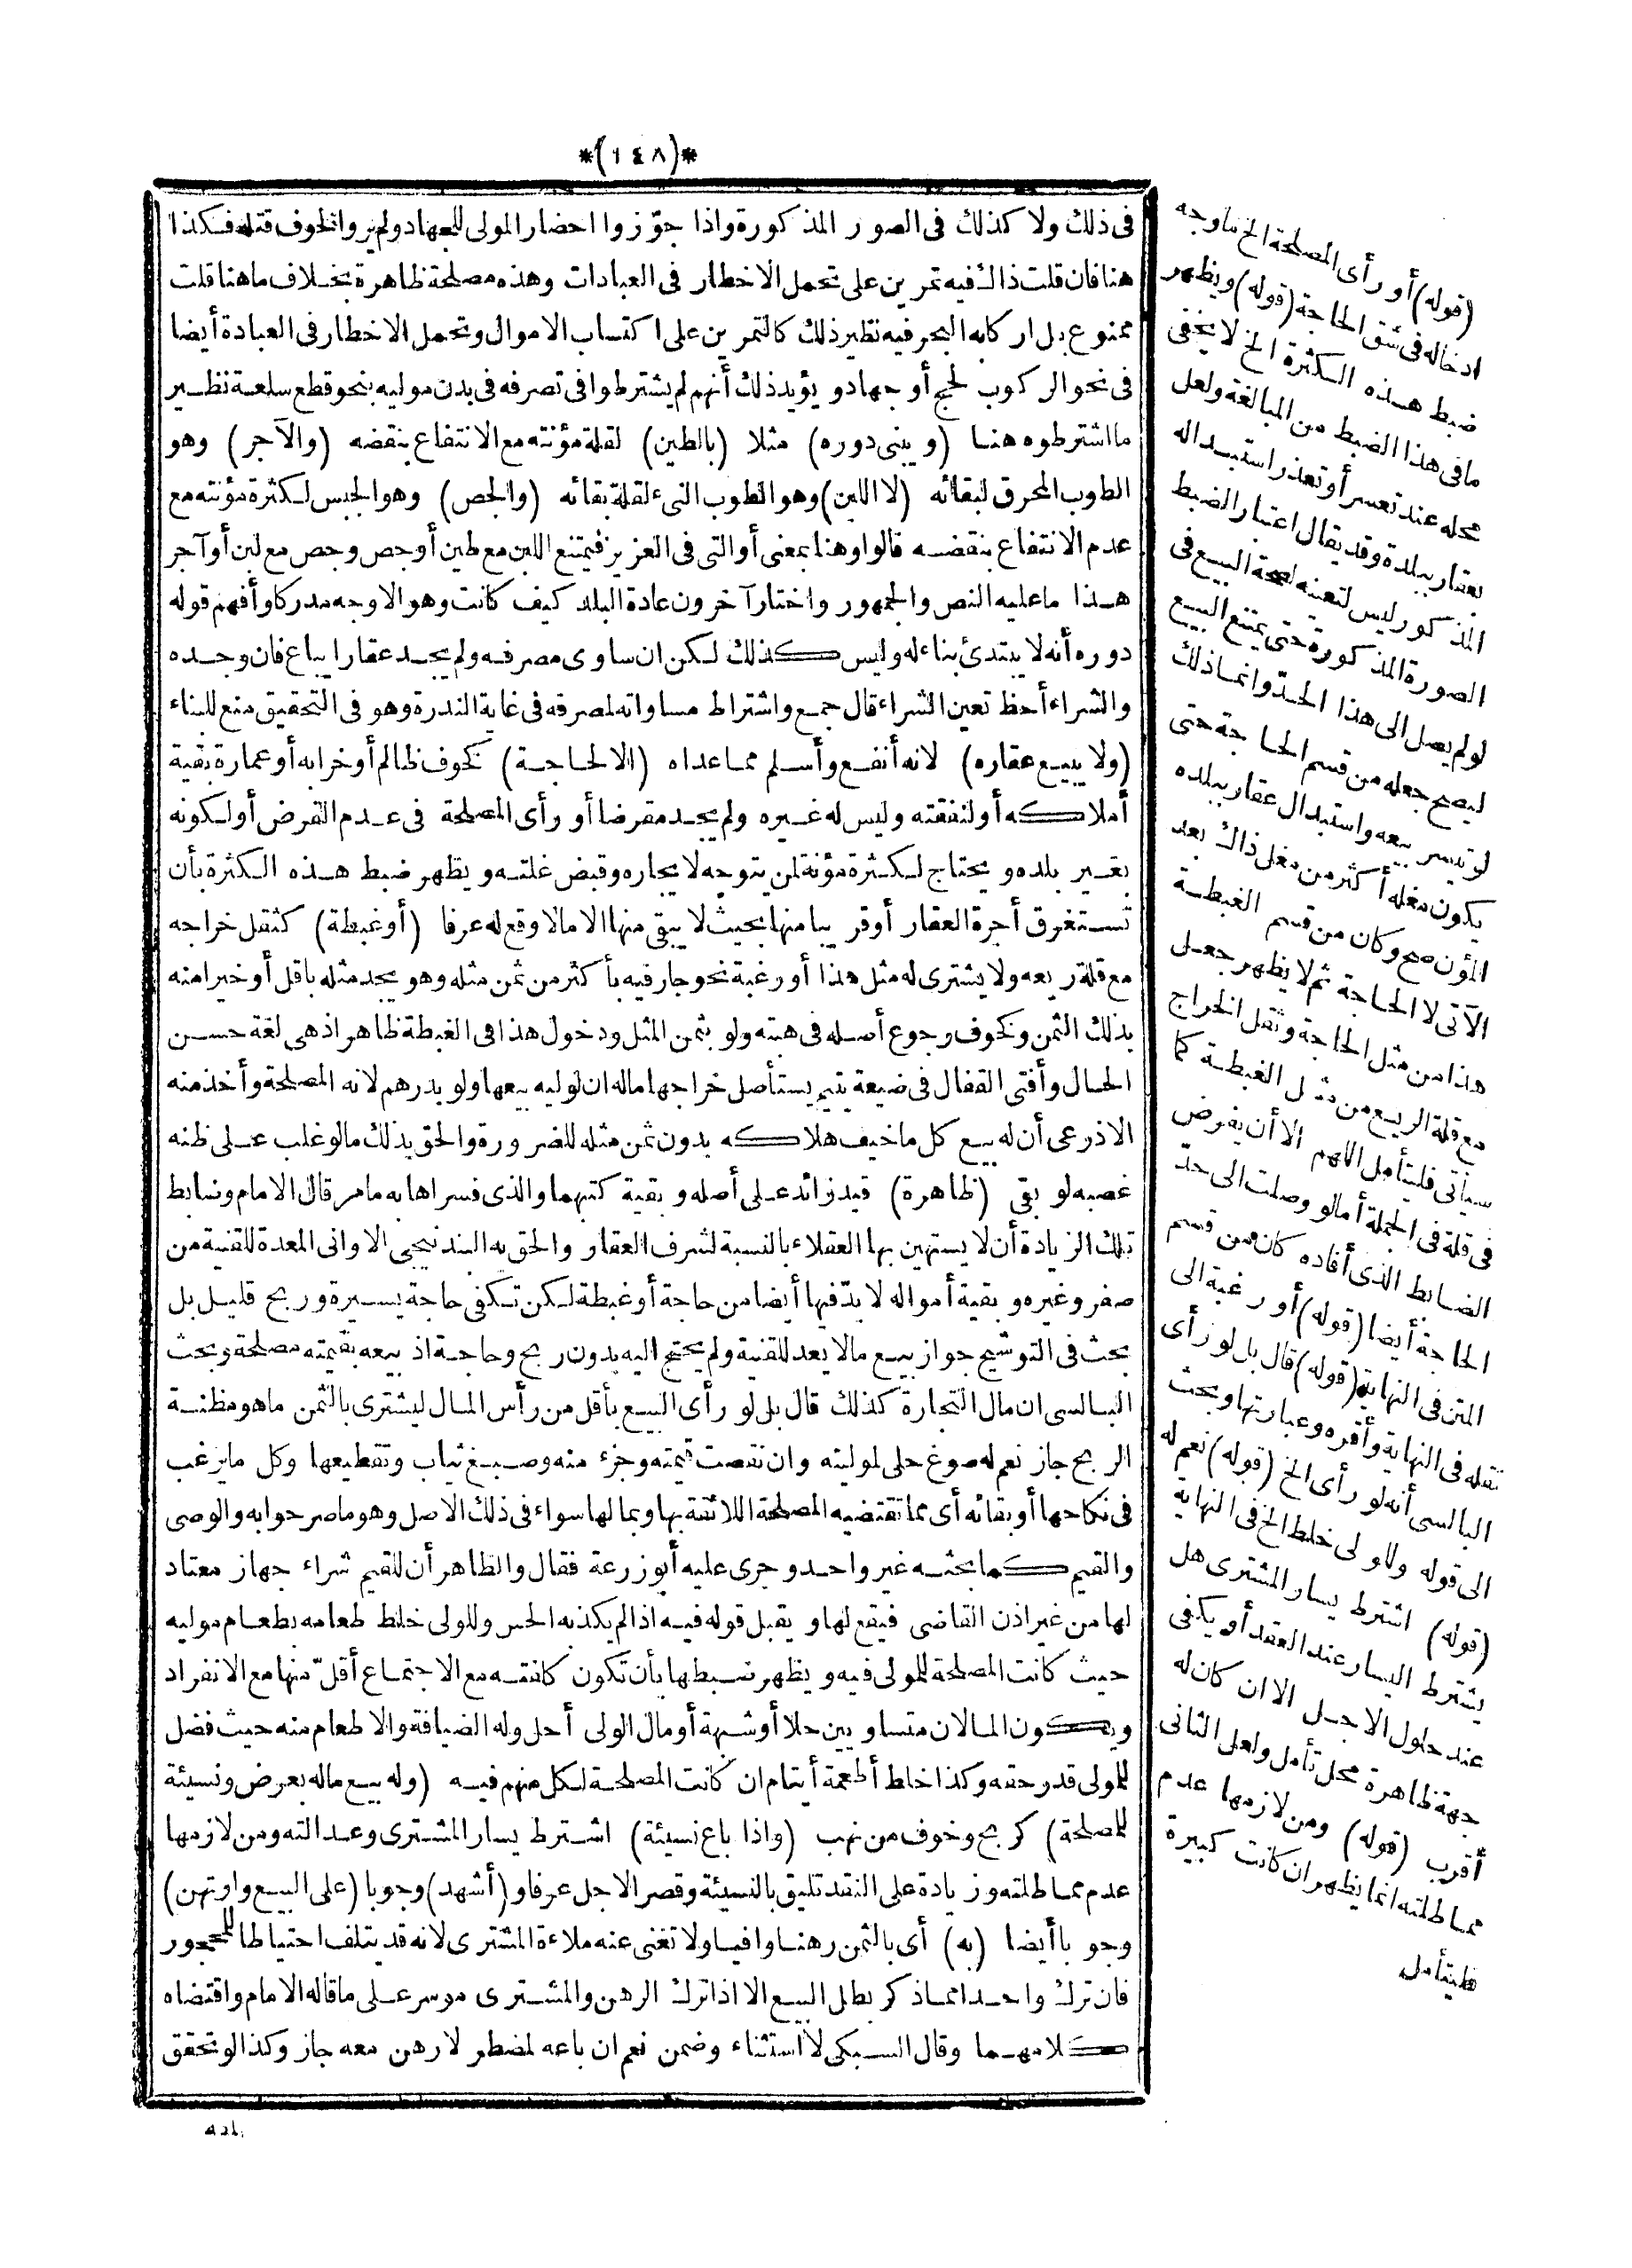 *(١٤٨)*
فى ذلك ولا كذلك فى الصور المذكورة واذا جوّزوا احضار المولى للجهاد ولم يروا لخوف قتله فكذا
هنا فان قلت ذاك فيه تمرين على تحمل الاخطار فى العبادات وهذه مصلحة ظاهرة بخلاف ما هنا قلت
ممنوع بل اركابه البحر فيه نظير ذلك كالتمرين على اكتساب الاموال وتحمل الاخطار فى العبادة أيضا
فى نحو الركوب لحج أو جهاد و يؤيد ذلك أنهم لم يشترطوا فى تصرفه فى بدن موليه بنحو قطع سلعة نظير
ما اشترطوه هنا (و يبنى دوره) مثلا (بالطين) لقلة مؤنته مع الانتفاع بنقضه (والآجر) وهو
الطوب المحرق لبقائه (لا اللبن) وهو الطوب النىء لقلة بقائه (والجص) وهو الجبس لكثرة مؤنته مع
عدم الانتفاع بنقضه قالوا وهنا بمعنى أو التى فى العزيز فيمتنع اللبن مع طين أو جص وجص مع لبن أو آجر
هذا ما عليه النص والجمهور واختار آخرون عادة البلد كيف كانت وهو الاوجه مدركا وأفهم قوله
دوره أنه لا يبتدئ بناء له وليس كذلك لكن ان ساوى مصرفه ولم يجد عقارا يباع فان وجده
والشراء أحظ تعين الشراء قال جمع واشتراط مساواته لمصرفه فى غاية الندرة وهو فى التحقيق منع للبناء
(ولا يبيع عقاره) لانه أنفع وأسلم مما عداه (الا لحاجة) كخوف ظالم أو خرابه أو عمارة بقية
أملاكه أو لنفقته وليس له غيره ولم يجد مقرضا أو رأى المصلحة فى عدم القرض أو لكونه
بغير بلده و يحتاج لكثرة مؤنة لمن يتوجه لايجاره وقبض غلته و يظهر ضبط هذه الكثرة بأن
تستغرق أجرة العقار أو قريبا منها بحيث لا يبقى منها الا ما لا وقع له عرفا (أو غبطة) كثقل خراجه
مع قلة ريعه ولا يشترى له مثل هذا أو رغبة نحو جار فيه بأكثر من ثمن مثله وهو يجد مثله باقل أو خيرا منه
بذلك الثمن وكخوف رجوع أصله فى هبته ولو بثمن المثل ودخول هذا فى الغبطة ظاهر اذ هى لغة حسن
الحال وأفتى القفال فى ضيعة يتيم يستأصل خراجها ماله ان لوليه بيعها ولو بدرهم لانه المصلحة وأخذ منه
الاذرعى أن له بيع كل ما خيف هلاكه بدون ثمن مثله للضرورة والحق بذلك ما لو غلب على ظنه
غصبه لو بقى (ظاهرة) قيد زائد على أصله و بقية كتبهما والذى فسراها به ما مر قال الامام وضابط
تلك الزيادة أن لا يستهين بها العقلاء بالنسبة لشرف العقار والحق به البندنيجى الاوانى المعدة للقنية من
صفر وغيره و بقية أمواله لا بدّ فيها أيضا من حاجة أو غبطة لكن تكفى حاجة يسيرة وربح قليل بل
بحث فى التوشيح جواز بيع ما لا يعد للقنية ولم يحتج اليه بدون ربح وحاجة اذ بيعه بقيمته مصلحة وبحث
البالسى ان مال التجارة كذلك قال بل لو رأى البيع بأقل من رأس المال ليشترى بالثمن ما هو مظنة
الربح جاز نعم له صوغ حلى لموليته وان نقصت قيمته وجزء منه وصبغ ثياب وتقطيعها وكل ما يرغب
فى نكاحها أو بقائه أى مما تقتضيه المصلحة اللائقة بها وبما لها سواء فى ذلك الاصل وهو ما صرحوا به والوصى
والقيم كما بحثه غير واحد وجرى عليه أبو زرعة فقال والظاهر أن للقيم شراء جهاز معتاد
لها من غير اذن القاضى فيقع لها و يقبل قوله فيه اذا لم يكذبه الحس وللولى خلط طعامه بطعام موليه
حيث كانت المصلحة للمولى فيه و يظهر ضبطها بأن تكون كلفته مع الاجتماع أقلّ منها مع الانفراد
و يكون المالان متساويين حلا أو شبهة أو مال الولى أحل وله الضيافة والاطعام منه حيث فضل
للمولى قدر حقه وكذا خلط أطعمة أيتام ان كانت المصلحة لكل منهم فيه (وله بيع ماله بعرض ونسيئة
للمصلحة) كربح وخوف من نهب (واذا باع نسيئة) اشترط يسار المشترى وعدالته ومن لازمها
عدم مماطلته وزيادة على النقد تليق بالنسيئة وقصر الاجل عرفا و (أشهد) وجوبا (على البيع وارتهن)
وجوبا أيضا (به) أى بالثمن رهنا وافيا ولا تغنى عنه ملاءة المشترى لانه قد يتلف احتياطا للمحجور
فان ترك واحدا مما ذكر بطل البيع الا اذا ترك الرهن والمشترى موسر على ما قاله الامام واقتضاه
كلامهما وقال السبكى لا استثناء وضمن نعم ان باعه لمضطر لا رهن معه جاز وكذا لو تحقق
(قوله) أو رأى المصلحة الخ ما وجه
ادخاله فى شق الحاجة (قوله) و يظهر
ضبط هذه الكثرة الخ لا يخفى
ما فى هذا الضبط من المبالغة ولعل
محله عند تعسر أو تعذر استبداله
بعقار ببلده وقد يقال اعتبار الضبط
المذكور ليس لتعينه لصحة البيع فى
الصورة المذكورة حتى يمتنع البيع
لو لم يصل الى هذا الحدّ وانما ذلك
ليصح جعله من قسم الحاجة حتى
لو تيسر بيعه واستبدال عقار ببلده
يكون مغله أكثر من مغل ذاك بعد
المؤن صح وكان من قسم الغبطة
الآتى لا الحاجة ثم لا يظهر جعل
هذا من مثل الحاجة وثقل الخراج
مع قلة الريع من مثل الغبطة كما
سيأتى فليتأمل اللهم الا أن يفرض
فى قلة فى الجملة أما لو وصلت الى حدّ
الضابط الذى أفاده كان من قسم
الحاجة أيضا (قوله) أو رغبة الى
المتن فى النهاية (قوله) قال بل لو رأى
نقله فى النهاية وأقره وعبارتها وبحث
البالسى أنه لو رأى الخ (قوله) نعم له
الى قوله وللولى خلط الخ فى النهاية
(قوله) اشترط يسار المشترى هل
يشترط اليسار عند العقد أو يكفى
عند حلول الاجل الا ان كان له
جهة ظاهرة محل تأمل ولعل الثانى
أقرب (قوله) ومن لازمها عدم
مماطلته انما يظهر ان كانت كبيرة
فليتأمل